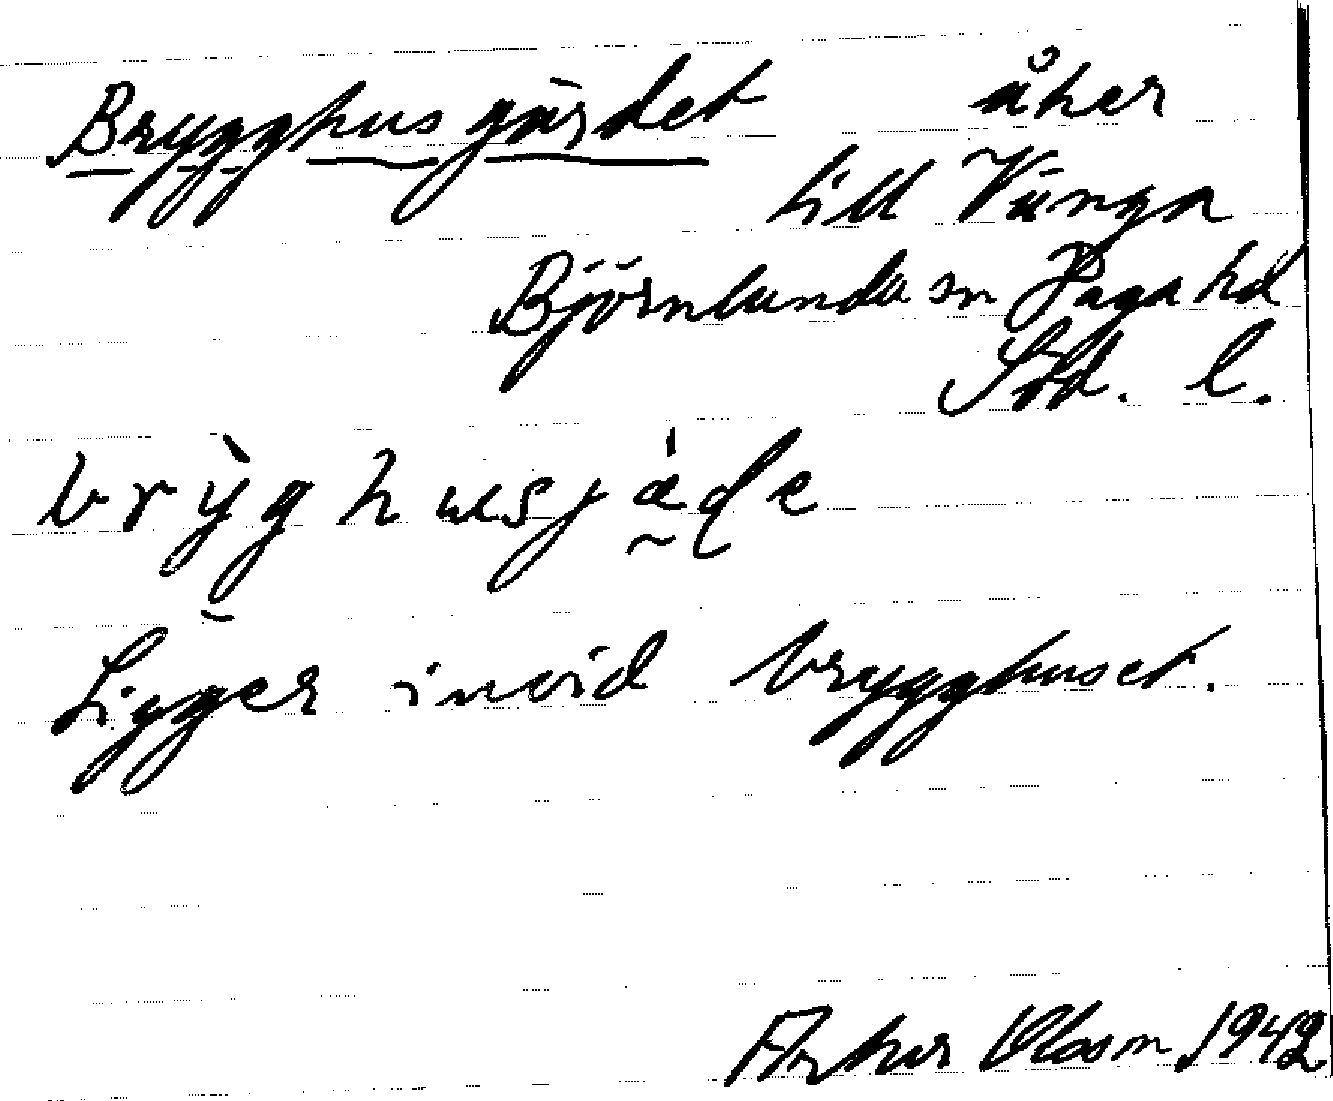 Brygghusgärdet åker
till Vänga
Björnlunda sn Daga hd
Söd. l.
brỳg husjäde
Ligger invid brygghuset.
Arthur Olosm 1942